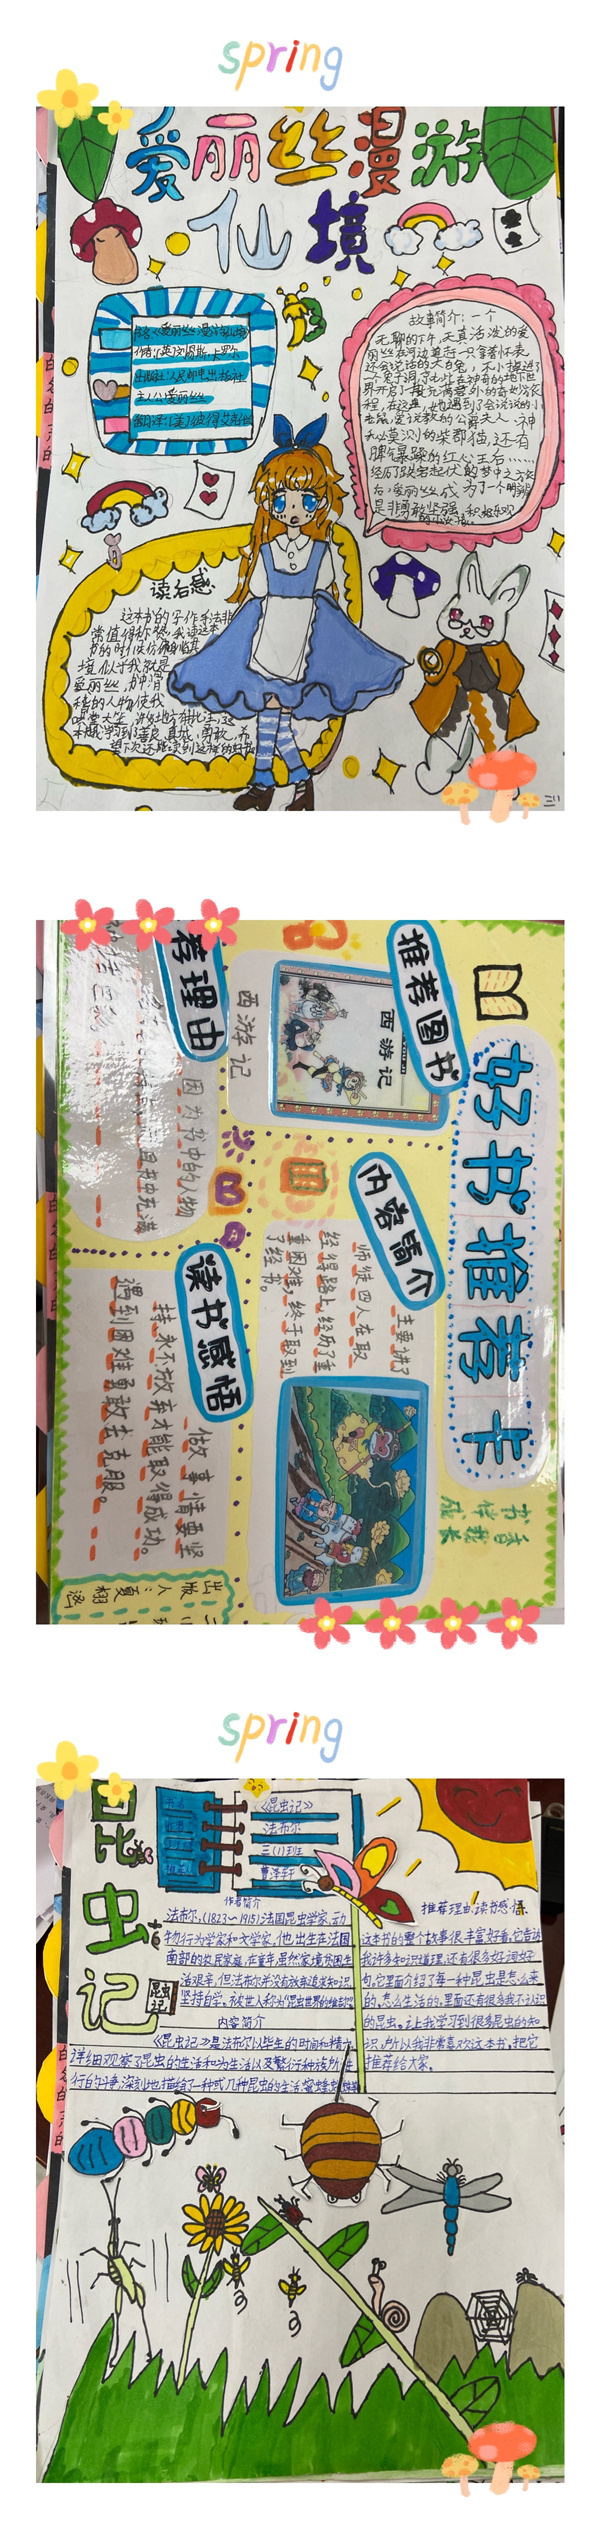 spring
爱丽丝漫游
仙境
书名:《爱丽丝漫游仙境》
作者:[英]刘易斯·卡罗尔
出版社:人民邮电出版社
主人公:爱丽丝
故事简介:一个
无聊的下午,天真活泼的爱
丽丝在河边
还会说话的大白兔,不小心掉进了
一个兔子洞,
程,在这里,她遇到了会说话的小
老鼠,爱说教的公爵夫人、神
秘莫测的柴郡猫,还有
脾气暴躁的红心王后……
经历了跌宕起伏的梦中之旅
后,爱丽丝成为了一个明辨
是非勇敢坚强、积极乐观
读后感
这本书的写作手法非
常值得称赞,我读这本
书的时候仿佛身临其
境似乎我就是
爱丽丝,
稽的人物使我
望下次还能读到这样的好书
三11
好书推荐卡
书香伴我成长
推荐图书
西游记
西游记
荐理由
因为书中的人物
书中充满
内容简介
主要讲了
师徒四人在取
经得路上,经历了重
重困难,终于取到
了经书。
读书感悟
做事情要坚
持永不放弃才能取得成功。
遇到困难勇敢去克服。
出版人:夏栩洛
spring
昆虫记
书名
《昆虫记》
法布尔
三(11)班
曹泽轩
昆虫记
作者简介
法布尔,(1823~1915)法国昆虫学家,动
物行为学家和文学家,他出生在法国
南部的农民家庭,在童年,虽然家境贫困生
活艰辛,但法布尔并没有放弃追求知识,
坚持自学。被世人称为“昆虫世界的维吉尔”
内容简介
《昆虫记》是法布尔以毕生的时间和精力
详细观察了昆虫的生活和为生活以及繁衍种族所进
行的斗争,深刻地描绘了一种或几种昆虫的生活:蜜蜂
推荐理由、读书感悟
这本书的整个故事很丰富好看,它告诉
我许多知识道理,还有很多好词好
句,它里面介绍了每一种昆虫是怎么来
的,怎么生活的,里面还有很多我不认识
的昆虫。让我学习到很多昆虫的知
识,所以我非常喜欢这本书,把它
推荐给大家。